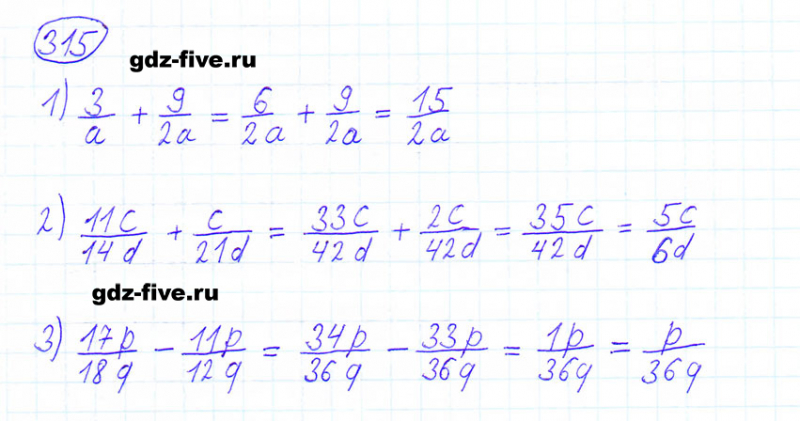 315
gdz-five.ru
1) 3/a + 9/2a = 6/2a + 9/2a = 15/2a
2) 11c/14d + c/21d = 33c/42d + 2c/42d = 35c/42d = 5c/6d
gdz-five.ru
3) 17p/18q - 11p/12q = 34p/36q - 33p/36q = 1p/36q = p/36q